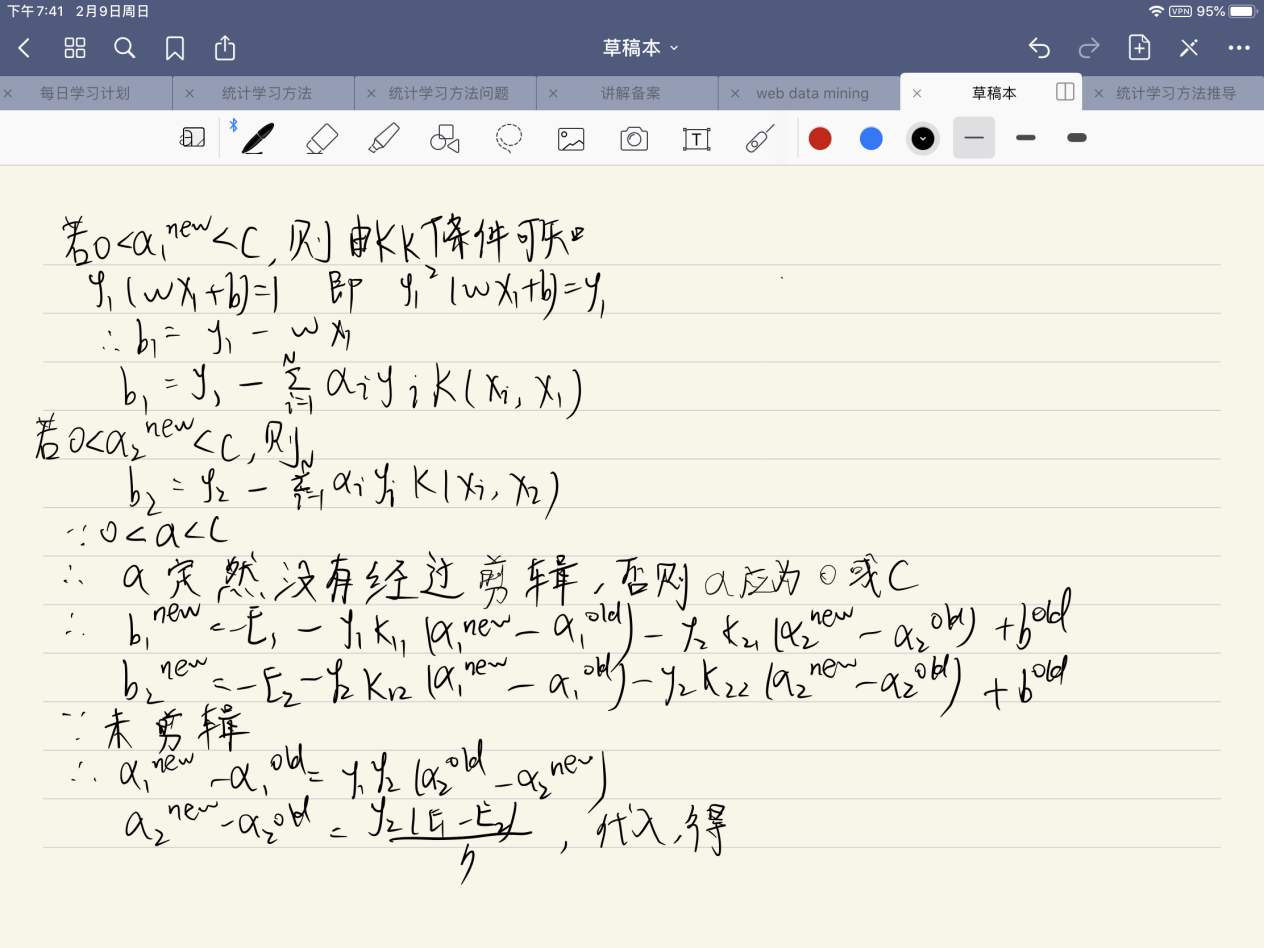 下午7:41 2月9日周日
VPN 95%
草稿本
每日学习计划 统计学习方法 统计学习方法问题 讲解备案 web data mining 草稿本 统计学习方法推导
若0<α₁ⁿᵉʷ<C,则由KKT条件可知
y₁(wx₁+b)=1 即 y₁²(wx₁+b)=y₁
∴b₁= y₁ - wx₁
b₁ = y₁ - Σᵢ₌₁ᴺ αᵢyᵢK(xᵢ,x₁)
若0<α₂ⁿᵉʷ<C,则
b₂ = y₂ - Σᵢ₌₁ᴺ αᵢyᵢK(xᵢ,x₂)
∵0<α<C
∴ α定然没有经过剪辑,否则α应为0或C
∴ b₁ⁿᵉʷ=-E₁ - y₁K₁₁(α₁ⁿᵉʷ - α₁ᵒˡᵈ) - y₂K₂₁(α₂ⁿᵉʷ - α₂ᵒˡᵈ) + bᵒˡᵈ
b₂ⁿᵉʷ=-E₂ - y₂K₁₂(α₁ⁿᵉʷ - α₁ᵒˡᵈ) - y₂K₂₂(α₂ⁿᵉʷ - α₂ᵒˡᵈ) + bᵒˡᵈ
∵未剪辑
∴ α₁ⁿᵉʷ - α₁ᵒˡᵈ = y₁y₂(α₂ᵒˡᵈ - α₂ⁿᵉʷ)
α₂ⁿᵉʷ - α₂ᵒˡᵈ = y₂(E₁-E₂)/η,代入,得